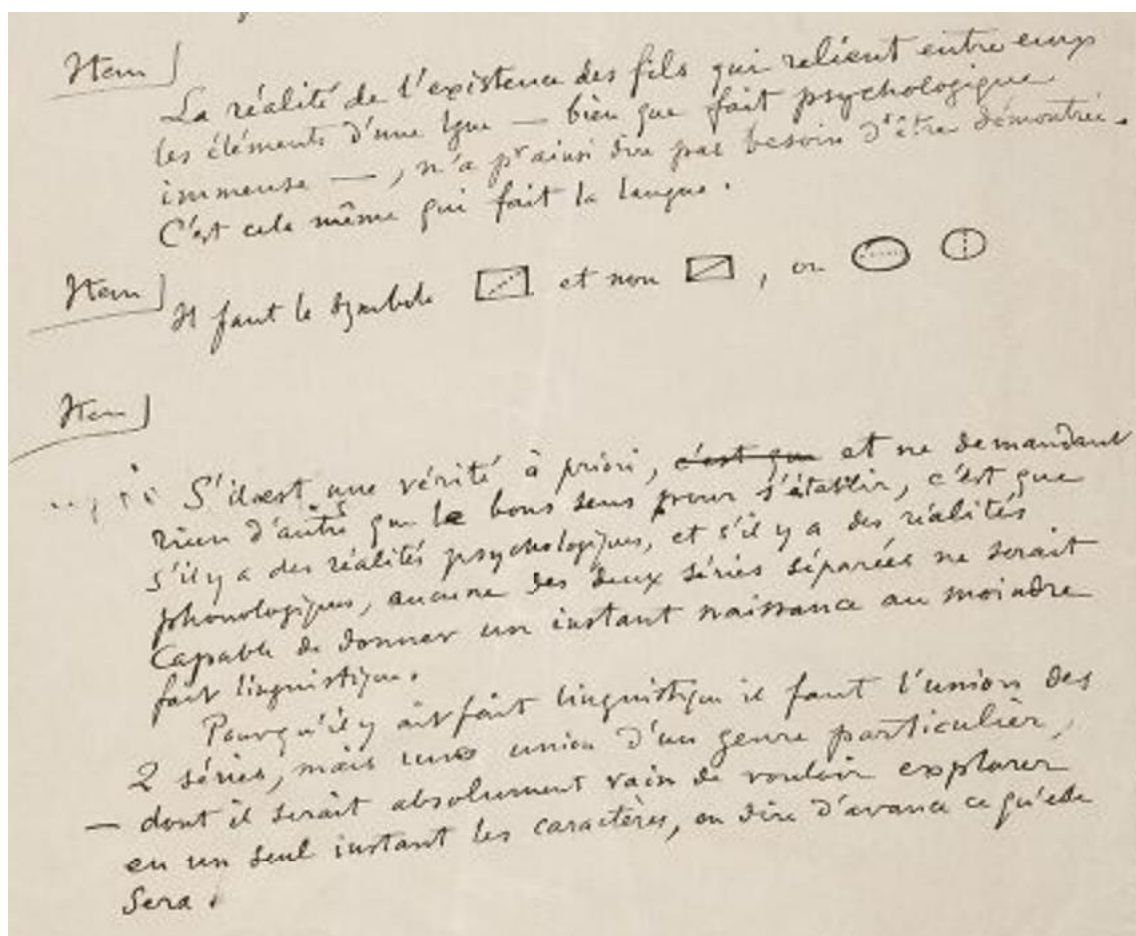 Item
La réalité de l'existence des fils qui relient entre eux
les éléments d'une lgue — bien que fait psychologique
immense —, n'a pr ainsi dire pas besoin d'être démontrée.
C'est cela même qui fait la langue.
Item
Il faut le symbole et non , ou
Item
S'il est une vérité à priori, c'est que et ne demandant
rien d'autre que le bons sens pour s'établir, c'est que
s'il y a des réalités psychologiques, et s'il y a des réalités
phonologiques, aucune des deux séries séparées ne serait
capable de donner un instant naissance au moindre
fait linguistique.
Pour qu'il y ait fait linguistique il faut l'union des
2 séries, mais une union d'un genre particulier,
— dont il serait absolument vain de vouloir explorer
en un seul instant les caractères, ou dire d'avance ce qu'elle
sera.